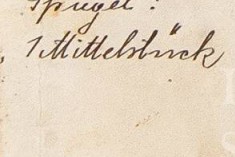 Spiegel:
1 Mittelstück